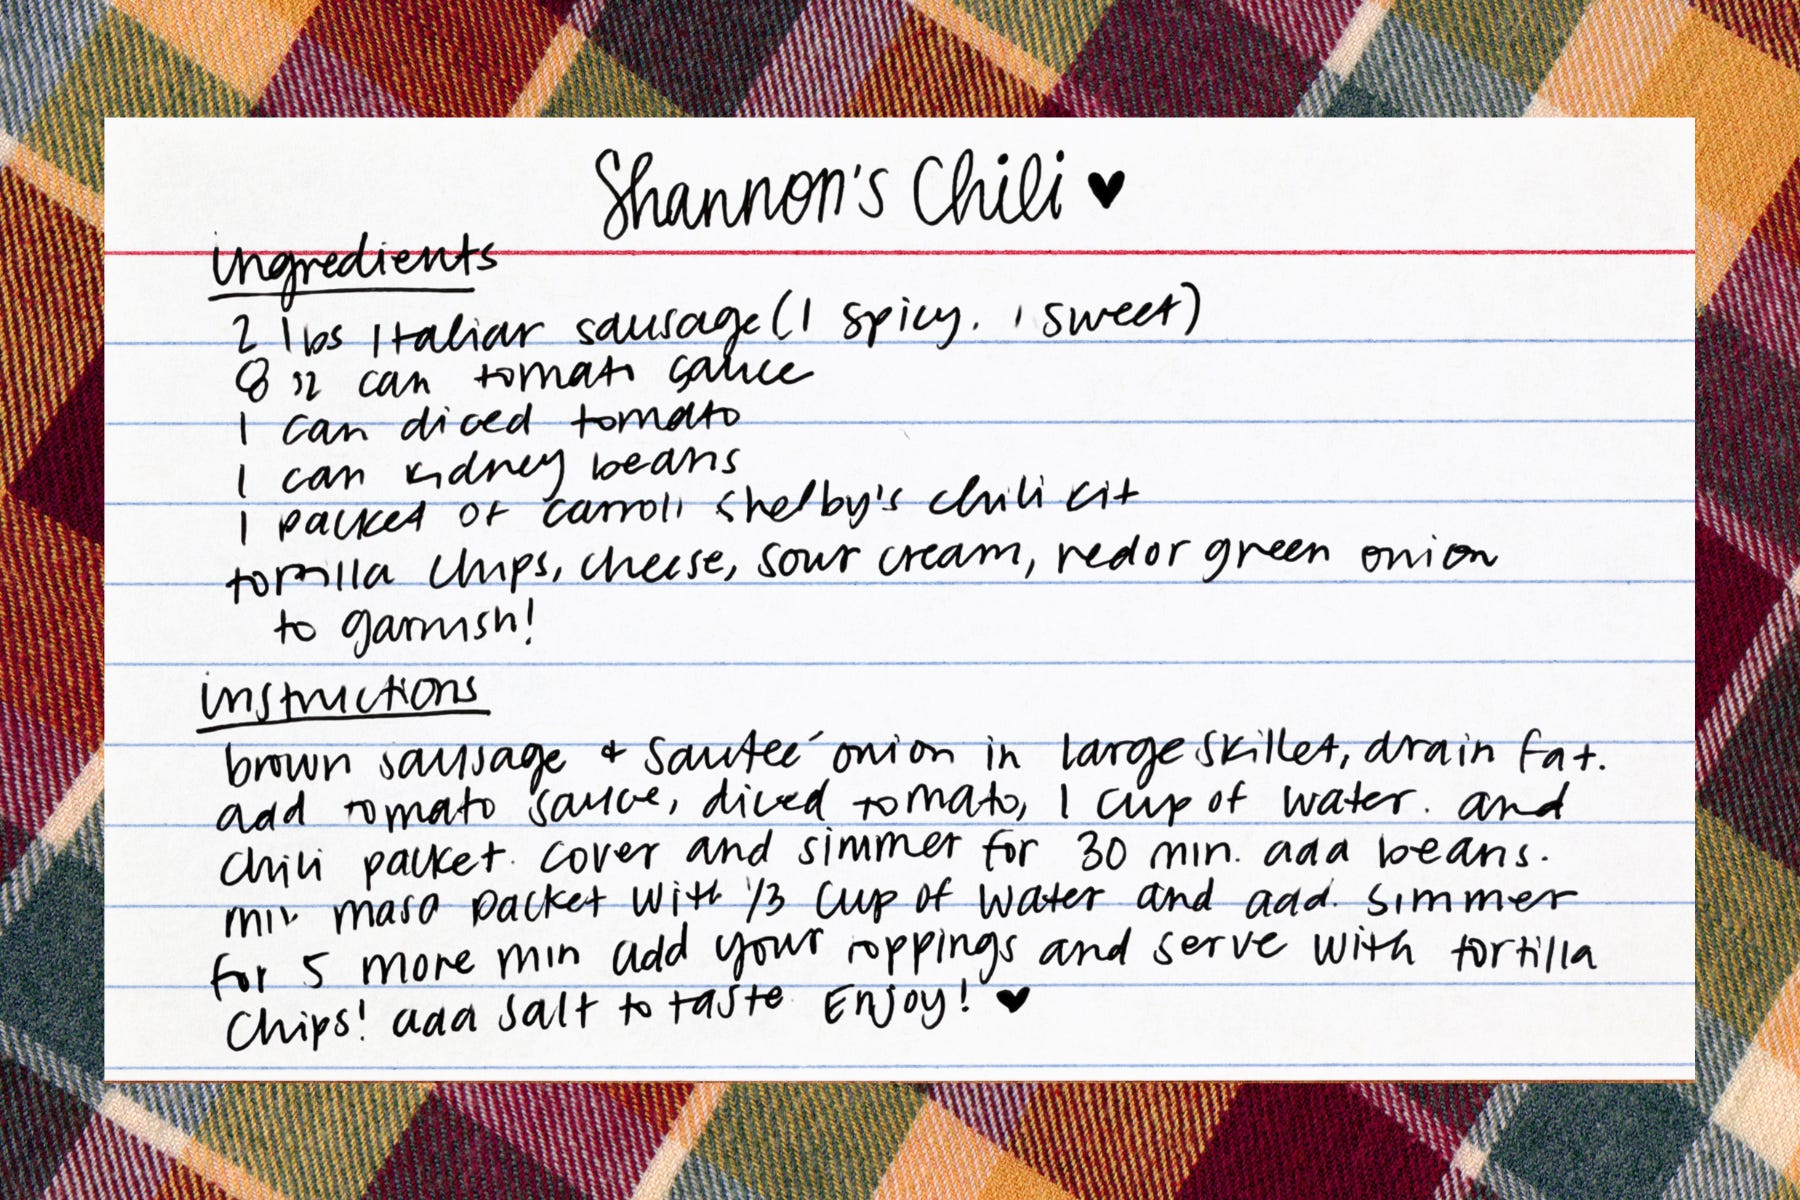 Shannon's Chili ♥
ingredients
2 lbs Italian sausage (1 spicy, 1 sweet)
8 oz can tomato sauce
1 can diced tomato
1 can kidney beans
1 packet of carroll shelby's chili kit
tortilla chips, cheese, sour cream, red or green onion
to garnish!
instructions
brown sausage + sauteé onion in large skillet, drain fat.
add tomato sauce, diced tomato, 1 cup of water. and
chili packet. cover and simmer for 30 min. add beans.
mix masa packet with 1/3 cup of water and add. simmer
for 5 more min add your toppings and serve with tortilla
chips! add salt to taste Enjoy! ♥